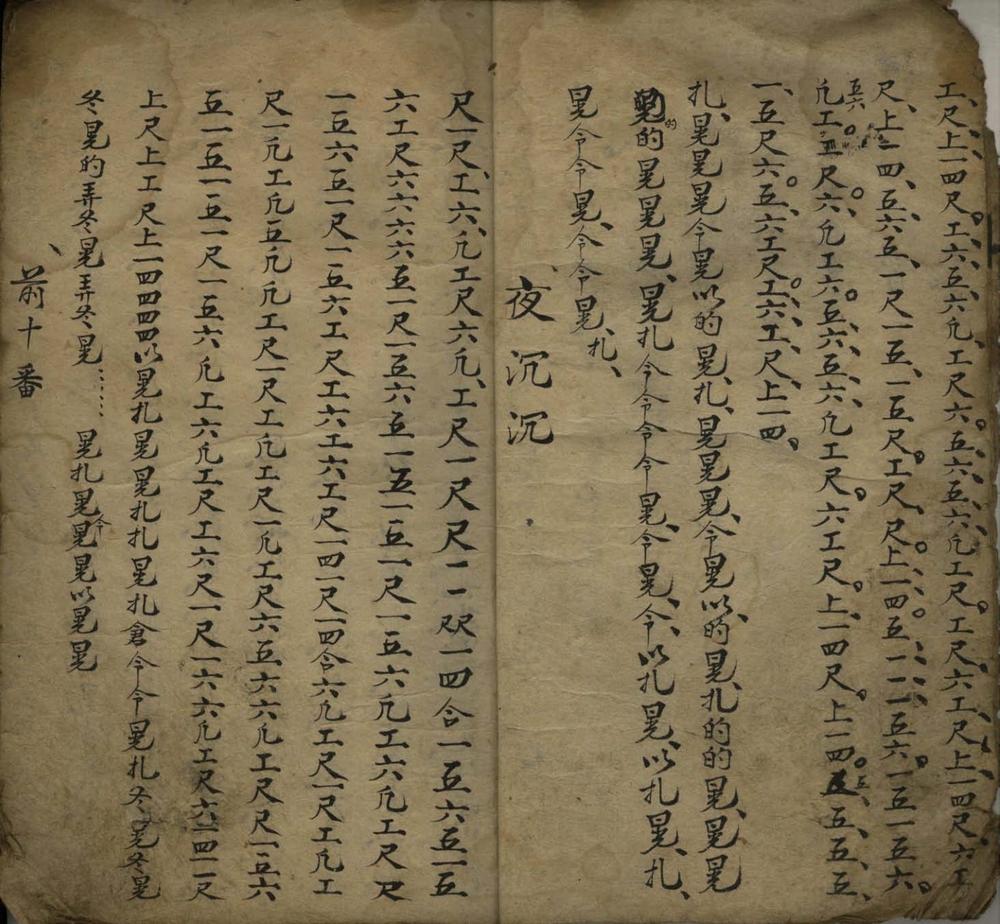 工、尺、上一四尺。工、六、五、六凡、工尺六。五、六五、六凡工尺。工尺、六工、尺、上一四尺、六工
尺、上一四、五、六五、一尺一五、一五尺。工尺、尺上一四五一一一五六、一五一五六。
凡工五尺六。凡工六。五六、五、六凡工尺。六工尺。上、一四尺。上一四五、五、五、
一、五尺六、五。六工尺。工、六、工、尺、上一四。
扎、晃晃晃令晃以的晃、扎、晃晃晃、令晃以、的晃、扎的的晃、晃晃
的晃晃晃、晃扎令令令令晃、令晃、令、以扎晃以扎晃、扎、
晃令令晃、令令晃、扎、
夜沉沉
尺一尺、工六、凡工尺六凡、工尺一尺尺一一尺尺一四合一五六五一五
六工尺六六六五一尺一五六五一五一五一尺一五六凡工六凡工尺尺
一五六五一尺一五六工尺工六工六工尺一四一尺一四合六凡工尺一尺工凡工
尺一凡工凡五凡凡工尺一尺工凡工尺一凡工尺六五六六凡工尺尺一五六
五一五一五一尺一五六凡工六凡工尺工六尺一尺一六六凡工尺六一四一尺
上尺上工尺上一四四四以晃扎晃晃扎扎晃扎倉令令晃扎冬晃冬晃
冬晃的弄冬晃弄冬晃、、、、、晃扎晃晃令晃以晃晃
、前十番